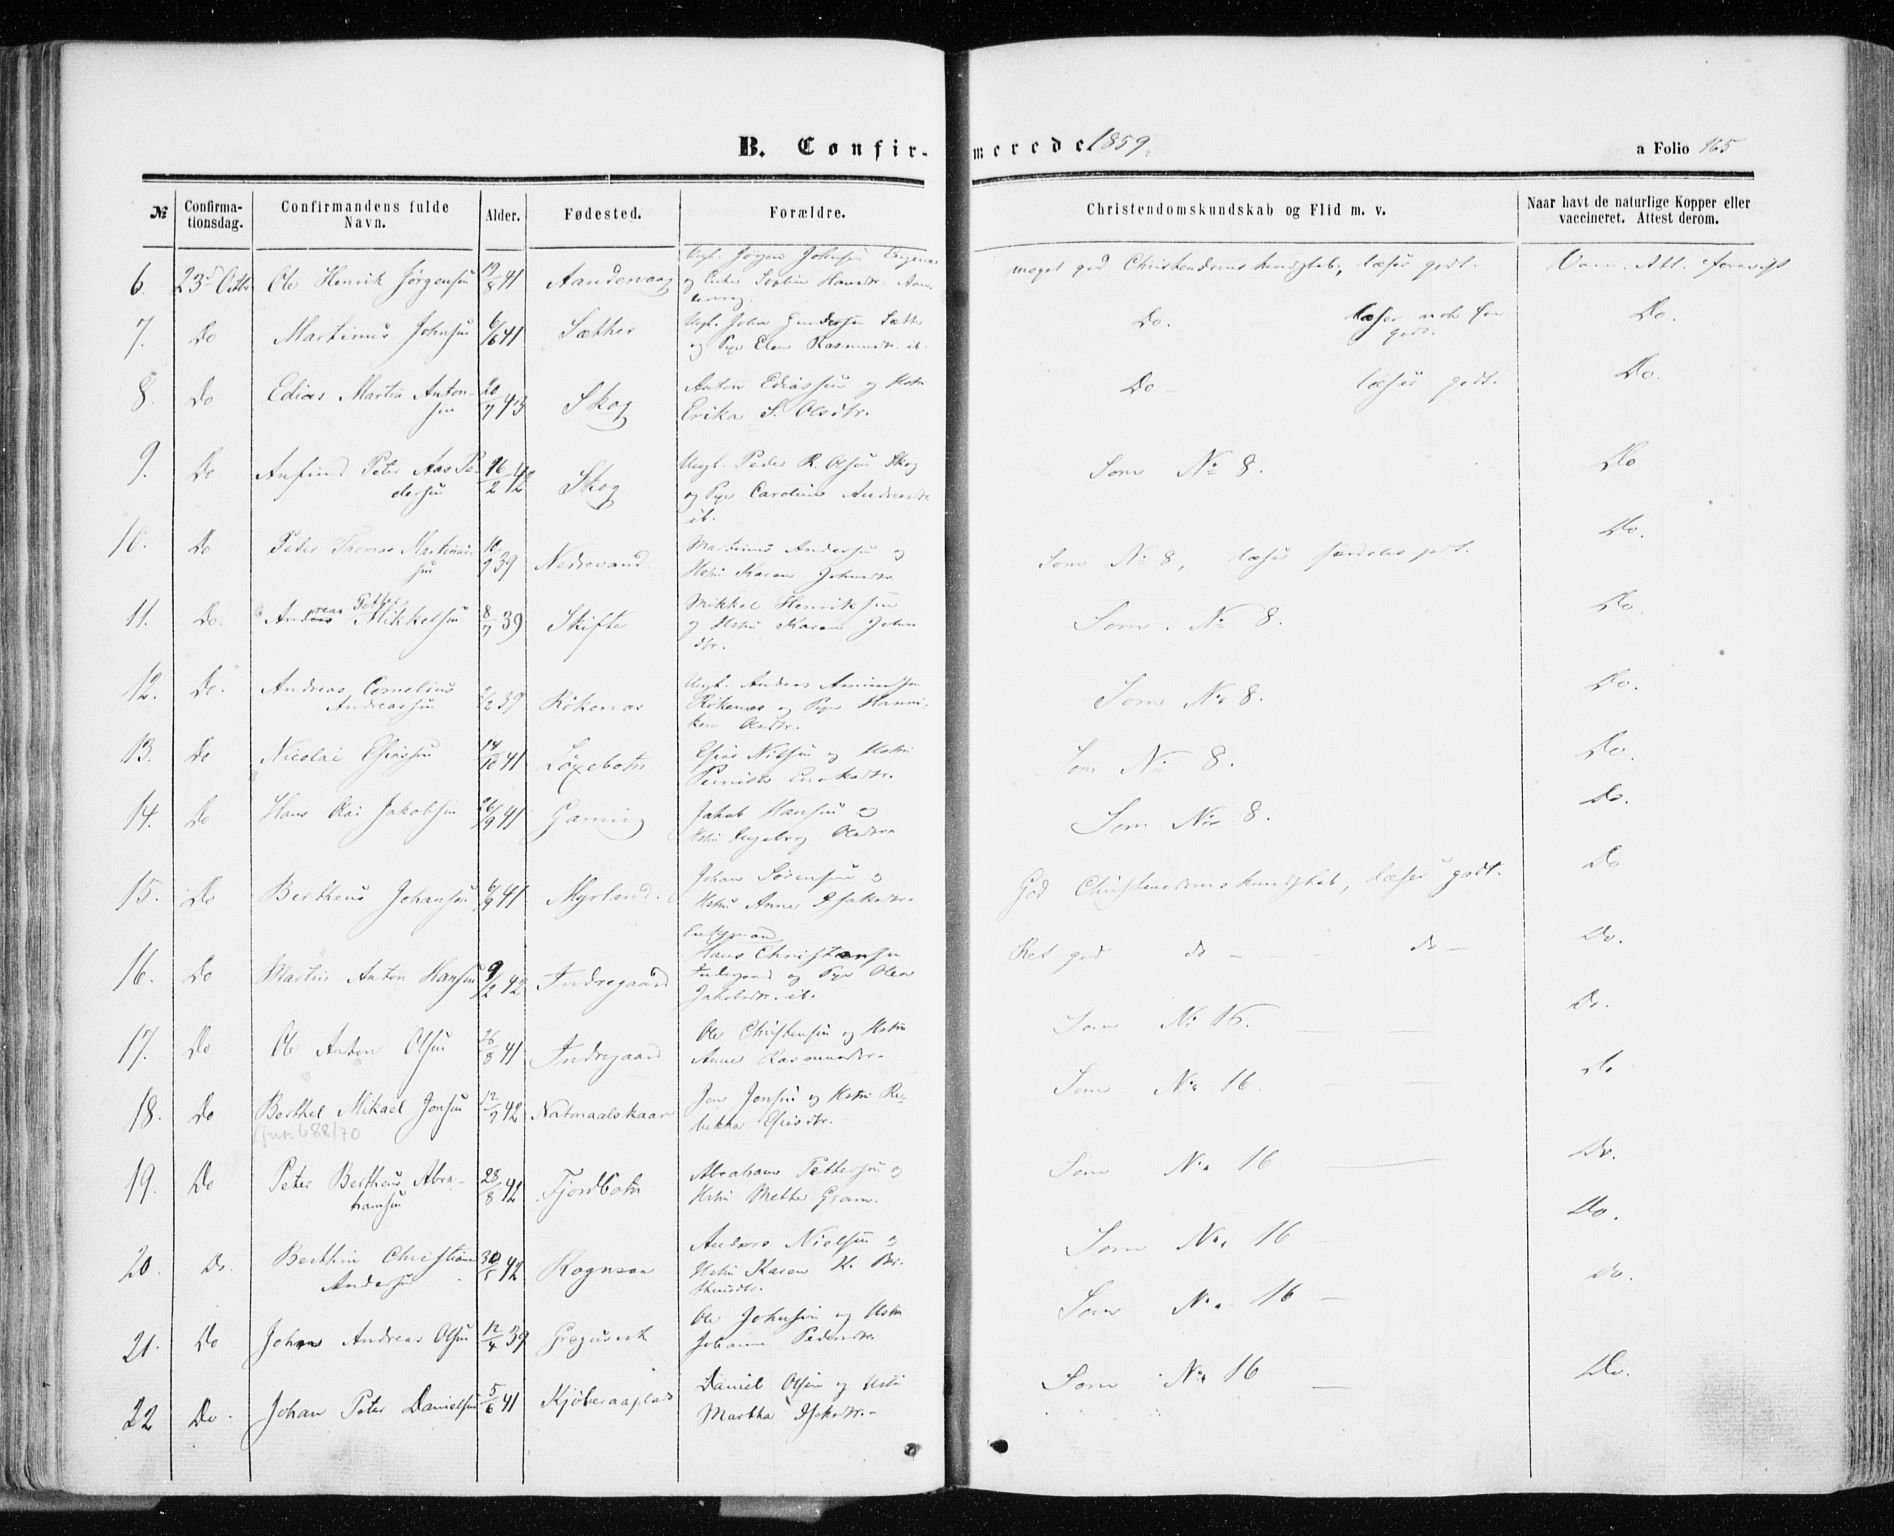 B. Confirmerede 1859.
a Folio 165
№ Confirmationsdag. Confirmandens fulde Navn. Alder. Fødested. Forældre. Christendomskundskab og Flid m. v. Naar havt de naturlige Kopper eller vaccineret. Attest derom.
6. 23d Octbr Ole Henrik Jørgensen 19/8 41 Aandervaag Ungk. Jørgen Johnsen og Enke Hansdr. meget god Christendomskundskab, læser godt. Vacc. Att. forevist
7. Do Martinus Johnsen 6/6 41 Sæther Ungk. John Sæther og Pige Elen Rasmusdr. ib. Do. læser godt. Do.
8. Do Edias Martin Antonsen 20/7 43 Skog Anton Ediassen og Hstru Erika S. Olsdtr. Do læser godt. Do.
9. Do Anfind Peter Aas Pedersen 16/2 42 Skog Ungk. Peder R. Olsen Skog og Pige Caroline Andreasdr. ib. Som No 8. Do
10. Do Peder Thomas Martinussen 10/9 39 Nedrevand. Martinus Andersen og Hstru Karen Johnsdtr Som No 8, læser særdeles godt. Do.
11. Do. Andreas Petter Mikkelsen 8/7 39 Skifte Mikkel Henriksen og Hstru Karen Johnsdtr. Som No 8. Do.
12. Do. Andreas Cornelius Andreassen /2 39 Rökenæs Ungk. Andreas Rökenæs og Pige Hanniken Olsdtr. Som No 8. Do.
13. Do Nicolai Esiassen 14/10 41 Löxebotn Esias Nilsen og Hstru Som No 8. Do.
14. Do Hans Olai Jakobsen 26/9 41 Jakob Hansen og Hstru Ingeborg Olsdtr Som No 8. Do.
15. Do Bertheus Johansen 6/9 41 Myrland. Johan Sörensen og Hstru Anne Isaksdtr. God Christendomskundskab, læser godt. Do
16. Do Martin Anton Hansen 9/2 42 Indregaard Enkemand Hans Christensen Indregaard og Pige Olea Jakobsdtr. ib. Ret god do - do - Do.
17. Do Ole Anton Olsen 26/8 41 Indregaard Ole Christensen og Hstru Anne Rasmusdtr. Som No 16. Do.
18. Do Berthel Mikael Jonsen 12/7 42 Natmaalskaar Jon Jonsen og Hstru Rebekka Esiasdtr. Som No 16. Do
jnr. 688/70
19. Do Peter Bertheus Abrahamsen 28/8 42 Fjordbotn Abraham Pettersen og Hstru Mette Gram. Som No 16 Do.
20. Do. Berthin Christian Andersen 30/5 42 Andors Nielsen og Hstru Karen K. Som No. 16 - Do.
21. Do Johan Andreas Olsen 12/4 39 Ole Johnsen og Hstru Johanne Pedersdtr. Som No. 16 - Do.
22 Do. Johan Peter Danielsen 5/6 41 Daniel Olsen og Hstru Martha Isaksdtr. Som No 16 - Do.